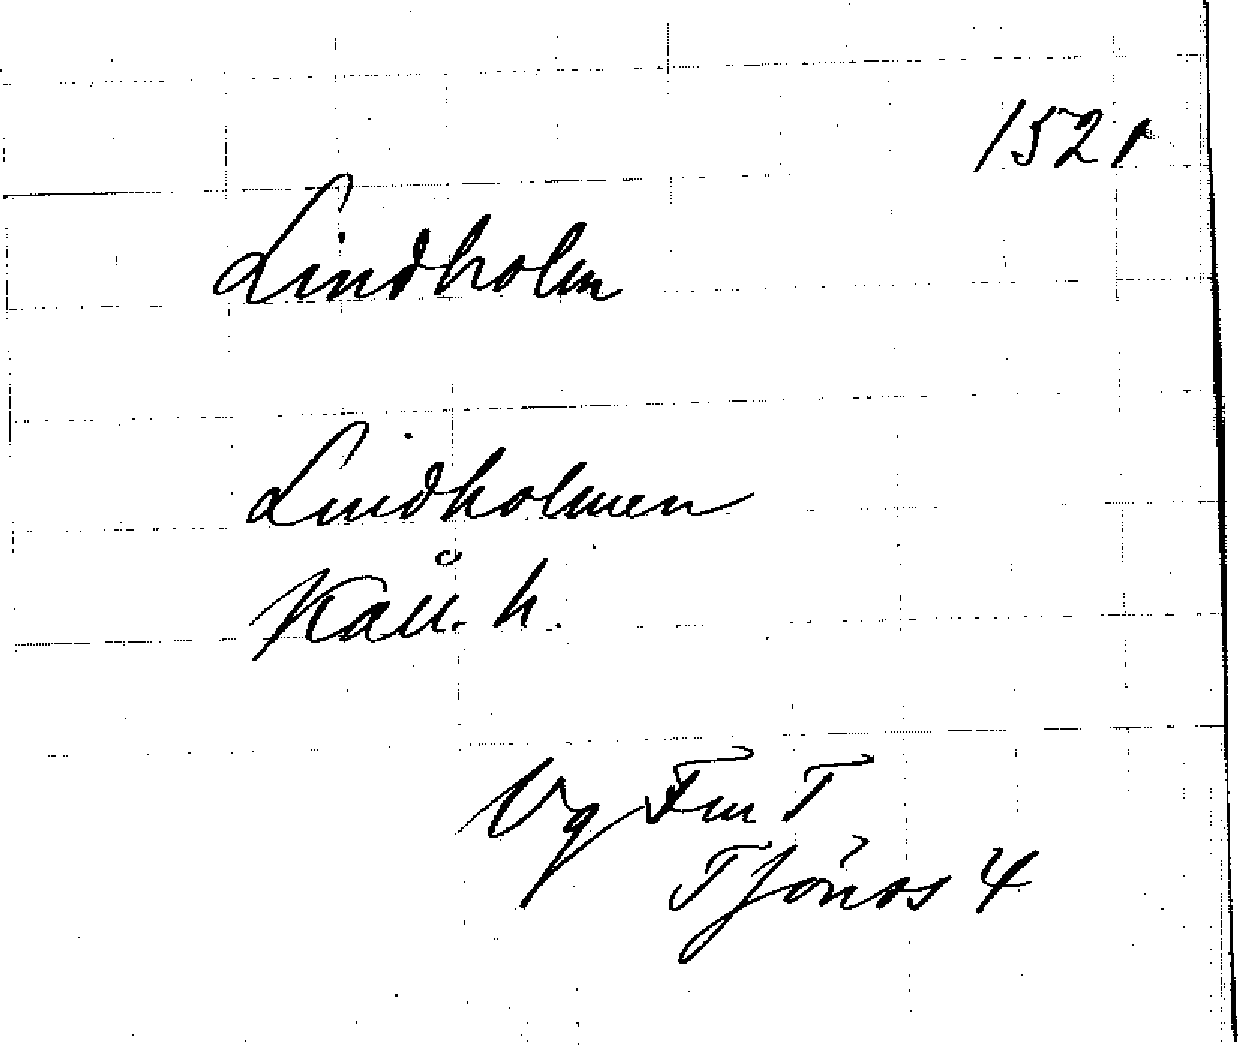 1521
Lindholm
Lindholmen
Kåll. h.
Vg Fm T
Tjänas 4